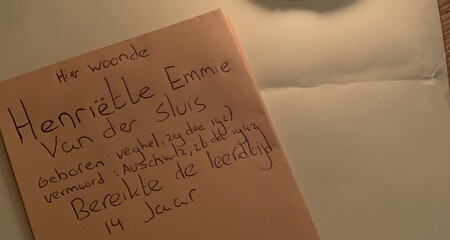 Hier woonde
Henriëtte Emmie
Van der Sluis
Geboren: Veghel, 29 dec 1927
vermoord: Auschwitz, 26 okt 1942
Bereikte de leeftijd
14 Jaar